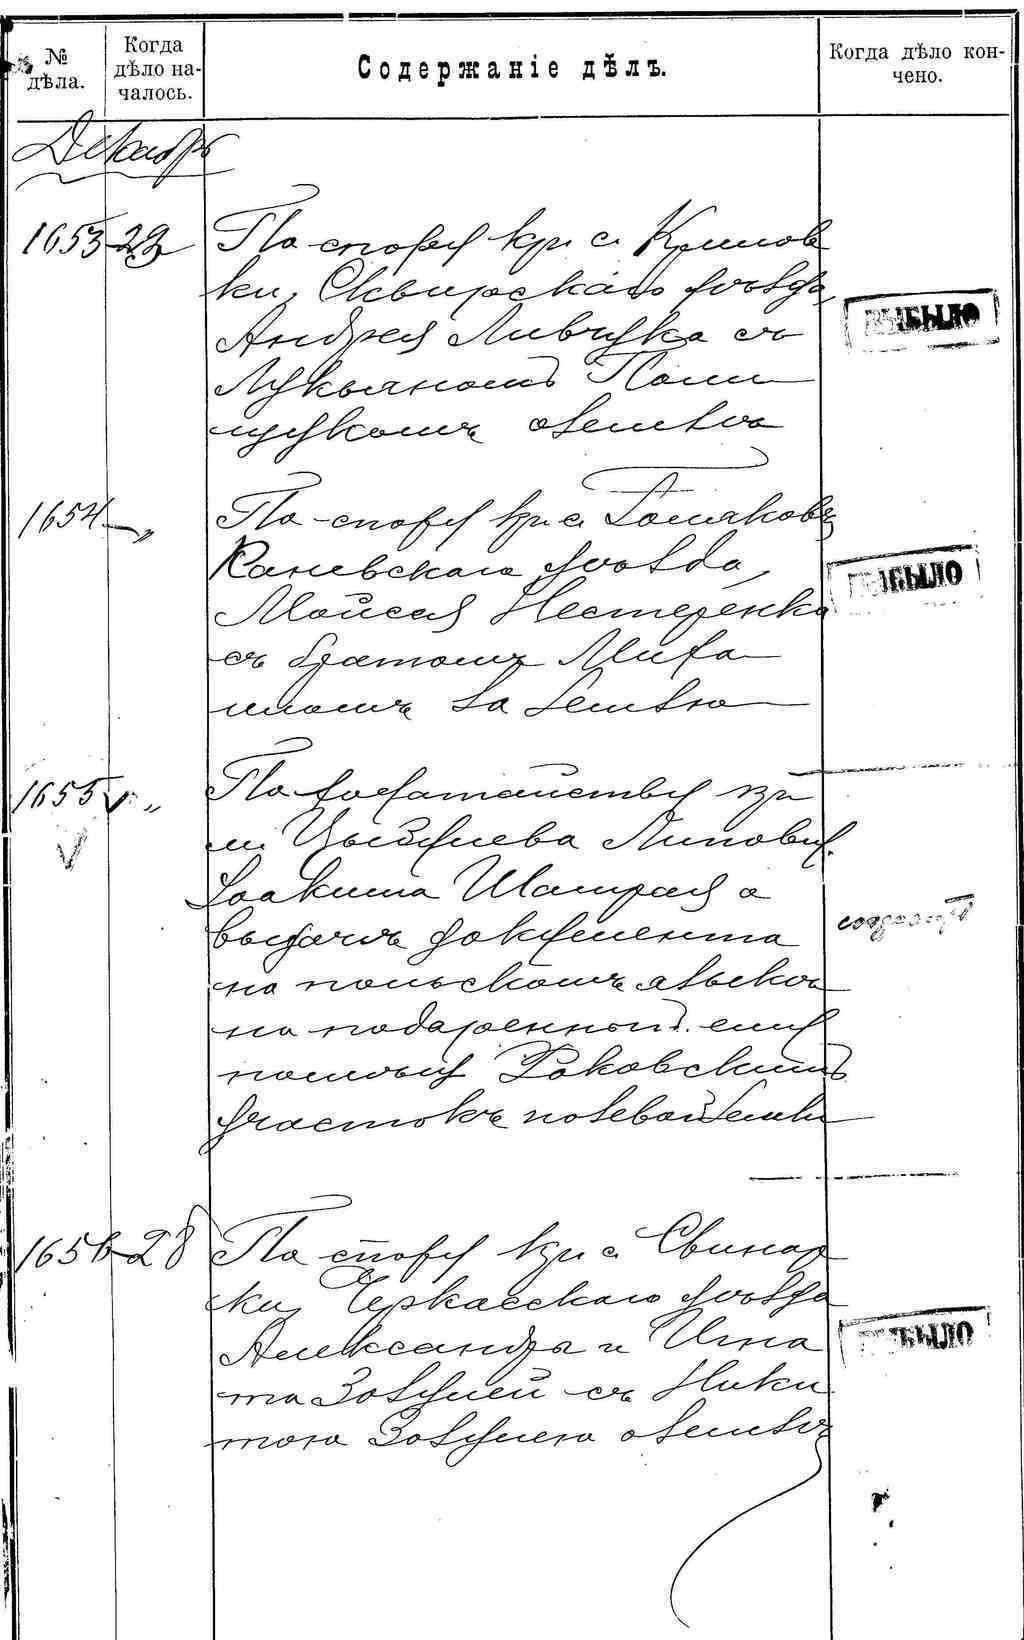 № дѣла.
Когда дѣло началось.
Содержаніе дѣлъ.
Когда дѣло кончено.
Декабрь
1653 23 По спору кр. с. Крилов
ки, Сквирскаго уѣзда,
Андрея Ливчука съ
Лукьяномъ Поли
щукомъ о землѣ
ВЫБЫЛО
1654 — „ По спору кр. с.
Каневскаго уѣзда,
Мойсея Нестеренка
съ братомъ Миха
иломъ за землю
ВЫБЫЛО
1655 „ По ходатайству кр.
м. Цыбулева Липовец.
Іоакима Шамрая о
выдачѣ документа
на польскомъ языкѣ
на подаренный ему
помѣщ. Раковскимъ
участокъ полевой земли
1656 28 По спору кр. с. Свинар
ки, Черкасскаго уѣзда
Александры и Игна
та Зозулей съ Ники
тою Зозулею о землѣ
ВЫБЫЛО